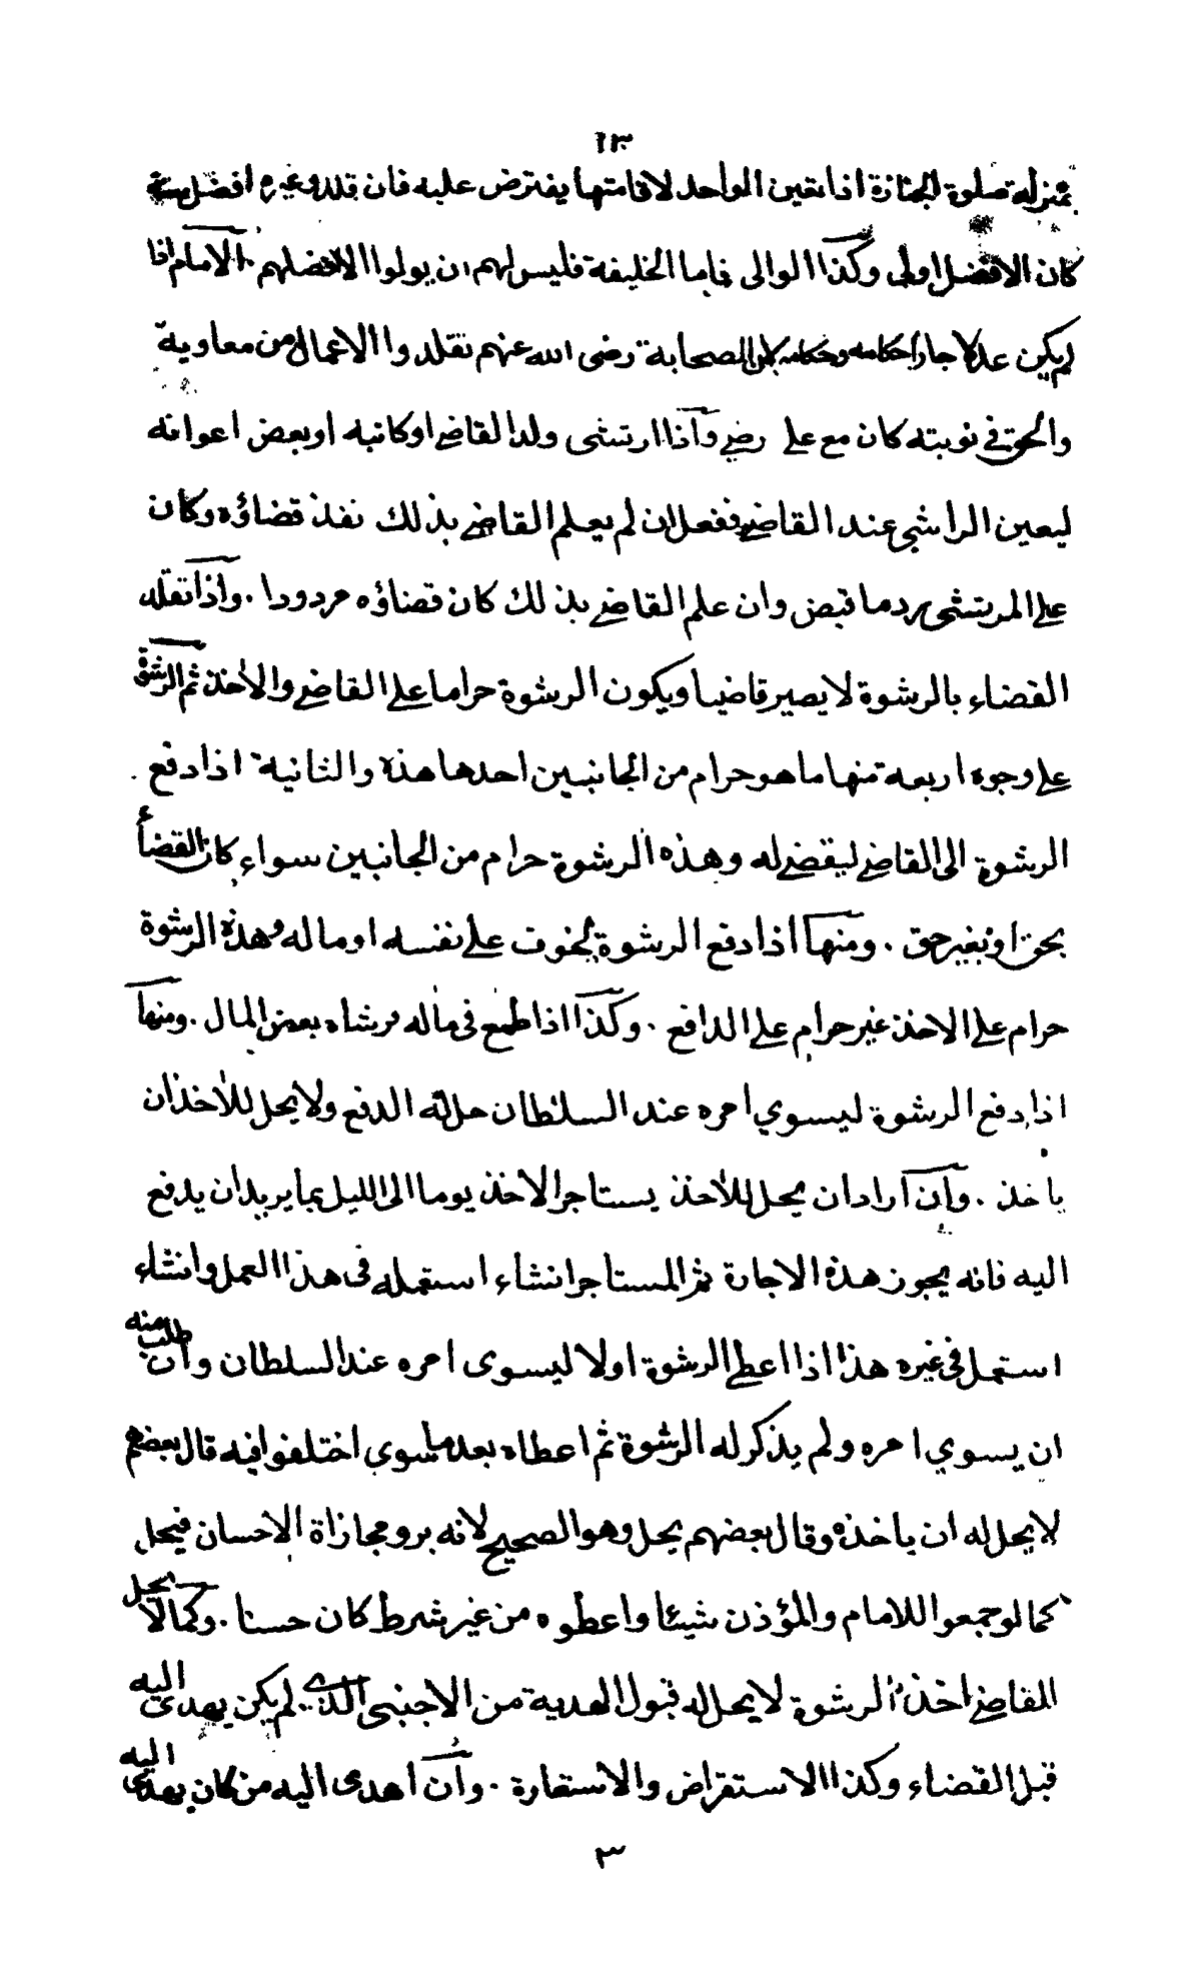 ١٣
بمنزلة صلوة الجنازة اذا تعين الواحد لاقامتها يفترض عليه فان قلد وغيره افضل منه
كان الافضل اولى وكذا الوالى فاما الخليفة فليس لهم ان يولوا الا افضلهم . الامام اذا
لم يكن عدلا جاز احكامه وحكامه لان الصحابة رضى الله عنهم تقلدوا الاعمال من معاوية
والحق في نوبته كان مع على رضي واذا ارتشى ولد القاضي او كاتبه او بعض اعوانه
ليعين الراشي عند القاضي ففعل ان لم يعلم القاضي بذلك نفذ قضاؤه وكان
على المرتشى رد ما قبض وان علم القاضي بذلك كان قضاؤه مردودا . واذا تقلد
القضاء بالرشوة لا يصير قاضيا ويكون الرشوة حراما على القاضي والاخذ ثم الرشوة
على وجوه اربعة منها ما هو حرام من الجانبين احدها هذه والثانية اذا دفع
الرشوة الى القاضي ليقضي له وهذه الرشوة حرام من الجانبين سواء كان القضأ
بحق او بغير حق . ومنها اذا دفع الرشوة لخوف على نفسه او ماله وهذه الرشوة
حرام على الاخذ غير حرام على الدافع . وكذا اذا طمع فى ماله فرشاه ببعض المال . ومنها
اذا دفع الرشوة ليسوي امره عند السلطان حل له الدفع ولا يحل للاخذ ان
ياخذ . وان اراد ان يحل للاخذ يستاجر الاخذ يوما الى الليل بما يريد ان يدفع
اليه فانه يجوز هذه الاجارة ثم المستاجر انشاء استعمله فى هذا العمل وانشاء
استعمل فى غيره هذا اذا اعطى الرشوة اولا ليسوى امره عند السلطان وان طلب منه
ان يسوي امره ولم يذكر له الرشوة ثم اعطاه بعد ما سوي اختلفوا فيه قال بعضهم
لا يحل له ان ياخذه وقال بعضهم يحل وهو الصحيح لانه بر ومجازاة الاحسان فيحل
كما لو جمعوا للامام والمؤذن شيئا واعطوه من غير شرط كان حسنا . وكما لا يحل
للقاضي اخذ الرشوة لا يحل له قبول الهدية من الاجنبى الذي لم يكن يهدى اليه
قبل القضاء وكذا الاستقراض والاستعارة . وان اهدى اليه من كان يهدى اليه
٣